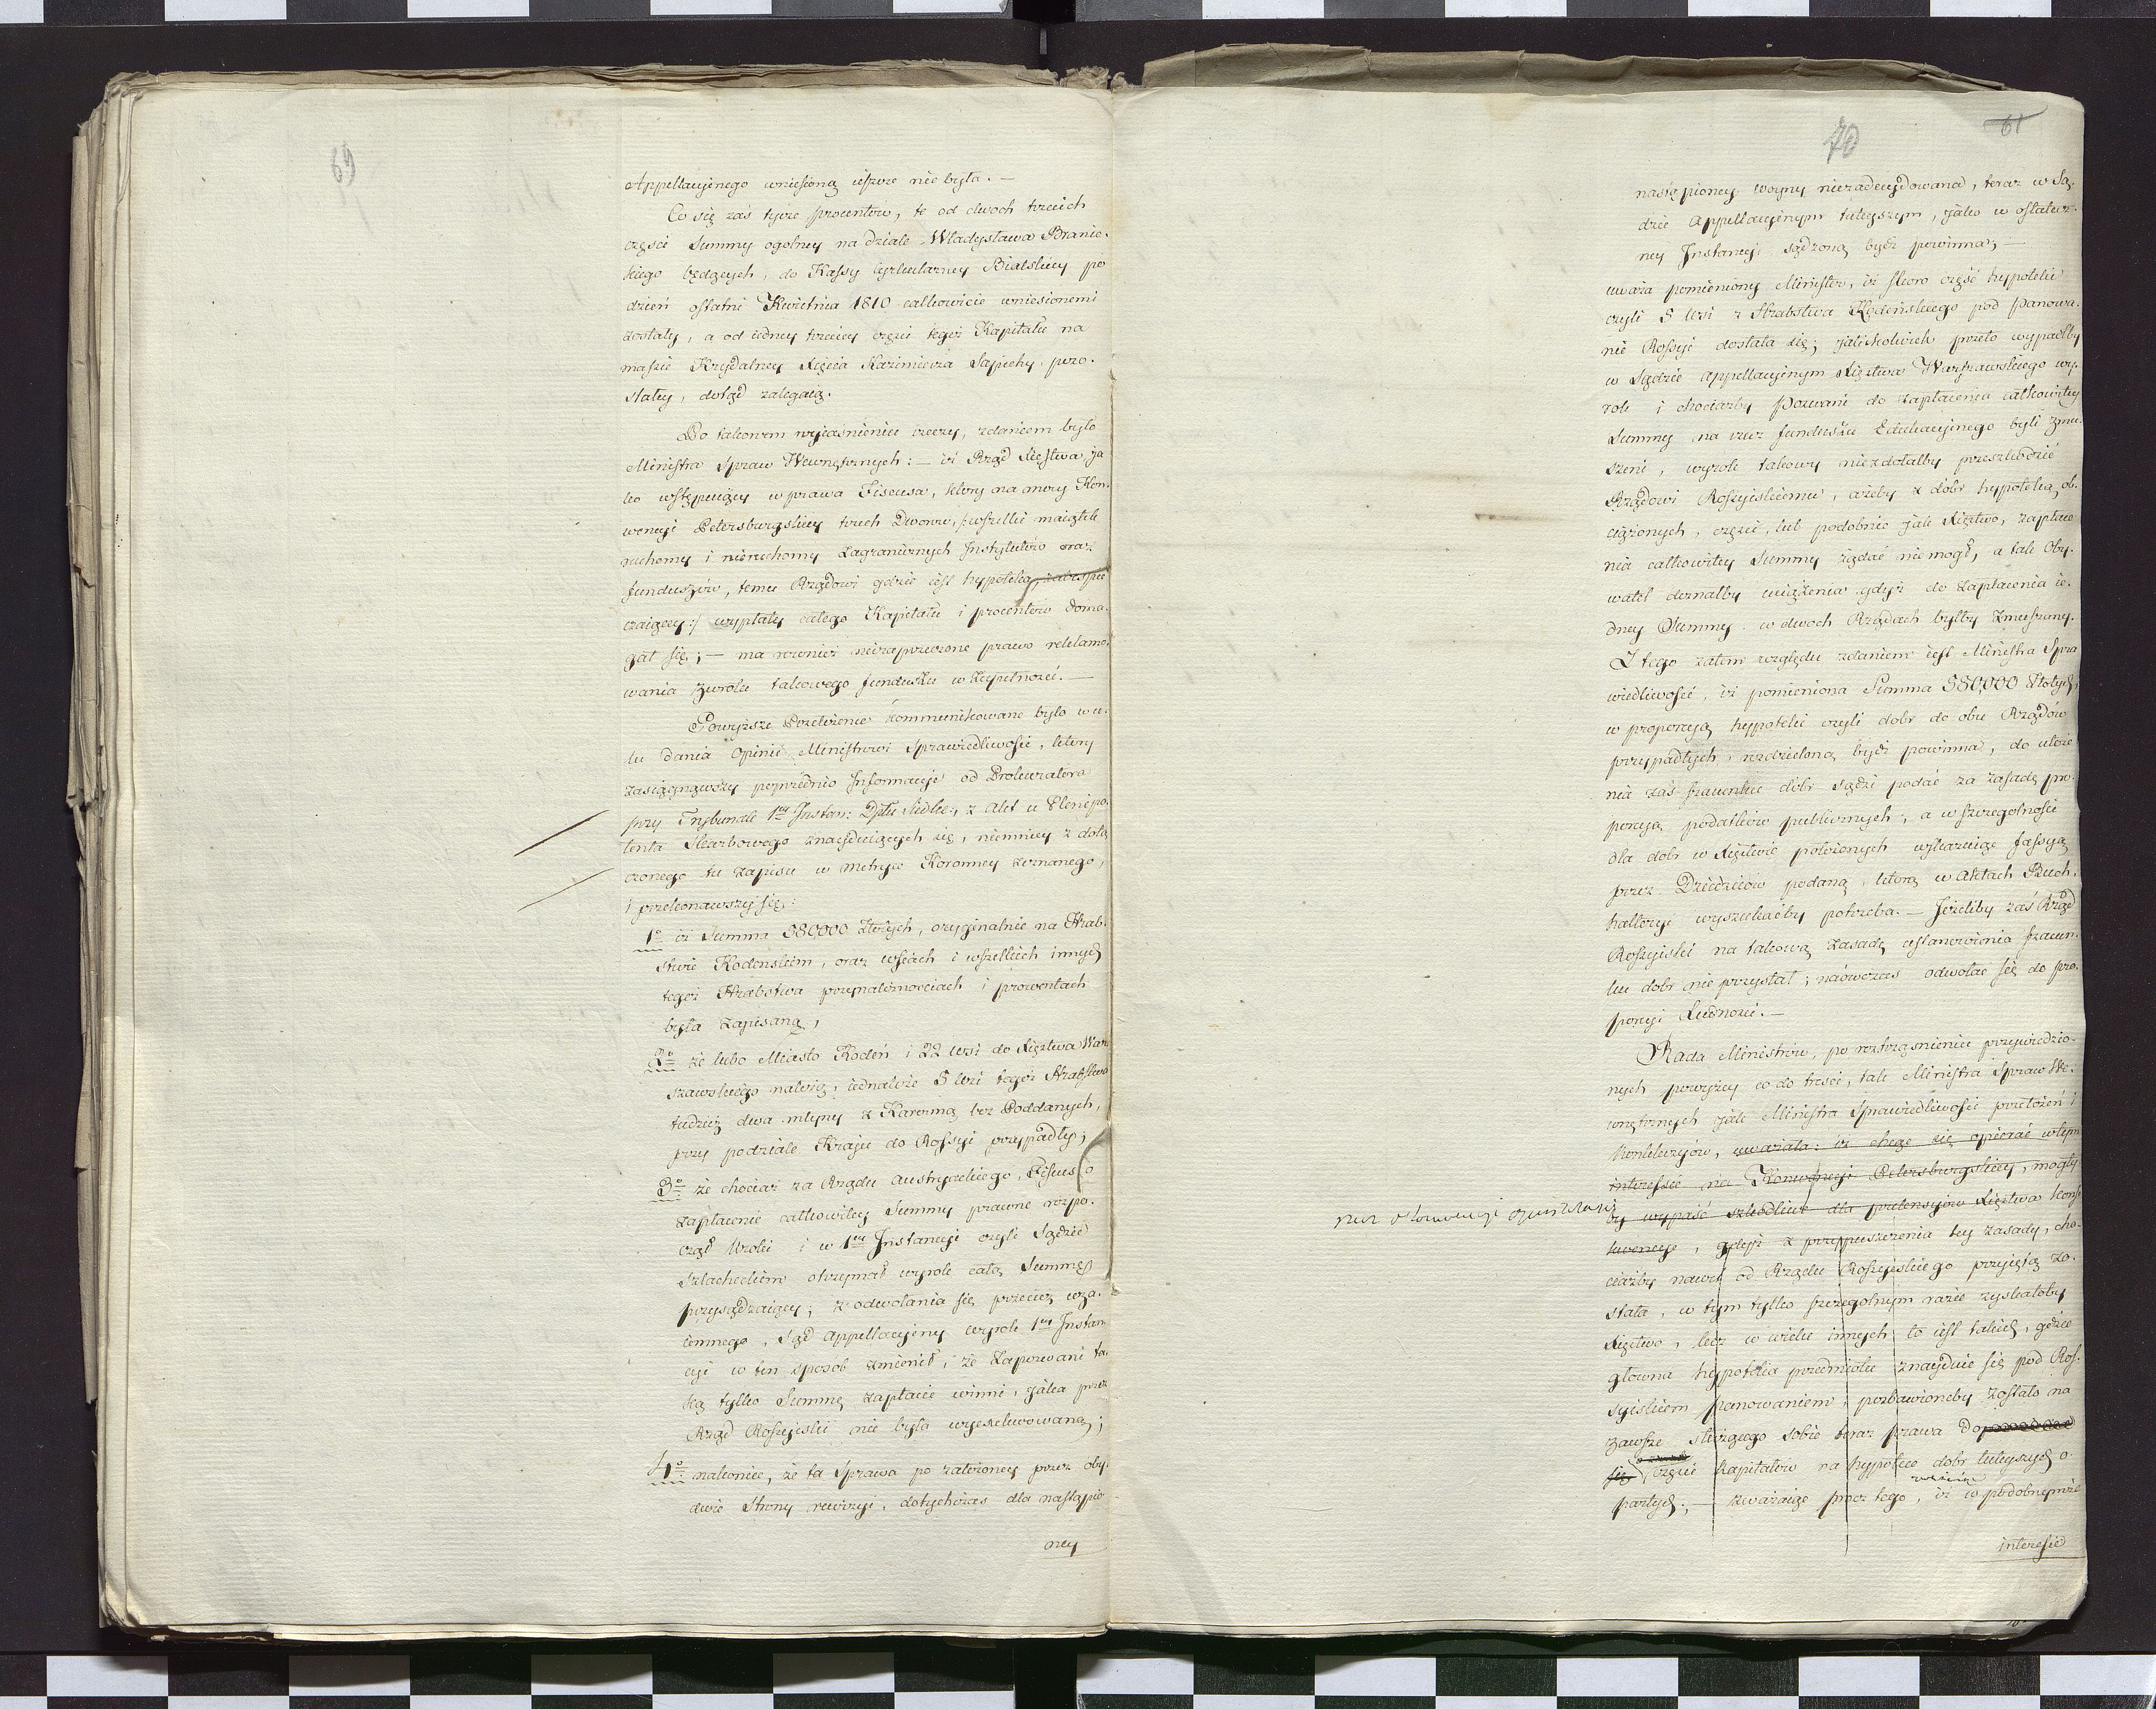 69
Appellacyinego wniesioną ieszcze nie była. —
Co się zaś tycze procentów, te od dwoch trzecich
części Summy ogolney na dziale Władysława Branic-
kiego będących, do Kassy Cyrkularney Bialskiey po
dzień ostatni Kwietnia 1810 całkowicie wniesionemi
zostały, a od iedney trzeciey części tegoż Kapitału na
massie Krydalney Xięcia Kazimierza Sapiehy pozo-
stałey, dotąd zalegaią.
Po takowem wyiaśnieniu rzeczy, zdaniem było
Ministra Spraw Wewnętrznych: — iż Rząd Xięstwa, ja-
ko wstępuiący w prawa Fiscusa, ktory na mocy Kon-
wencyi Petersburgskiey trzech Dworow, /: wszelki maiątek
ruchomy i nieruchomy zagranicznych Instytutów oraz
funduszów, temu Rządowi gdzie iest hypoteką, zabespie-
czaiącey :/ wypłaty całego Kapitału i procentów doma-
gał się; — ma rownież niezaprzeczone prawo reklamo-
wania zwrotu takowego funduszu w zupełności. —
Powyższe Przełożenie kommunikowane było w ce-
lu dania Opinii Ministrowi Sprawiedliwości, ktory
zasiągnąwszy poprzednio Informacyi od Prokuratora
przy Trybunale 1ey Instan: Dptu Siedlec:, z Akt u Plenipo-
tenta Skarbowego znayduiących się, niemniey z dołą-
czonego tu zapisu w Metryce Koronney zeznanego,
i przekonawszy się:
1o iż Summa 580,000 złotych, oryginalnie na Hrab-
stwie Kodenskim, oraz wsiach i wszelkich innych
tegoż Hrabstwa przynależnościach i prowentach
była zapisaną,
2o że lubo Miasto Kodeń i 22 wsi do Xięztwa War-
szawskiego należą, iednakże 5 wsi tegoż Hrabstwa
tudzież dwa młyny z Karczmą bez Poddanych,
przy podziale Kraju do Rossyi przypadły;
3o że chociaż za Rządu Austryackiego, Fiskus o
zapłacenie całkowitey Summy prawne rozpo-
czął kroki i w 1ey Instancyi czyli Sądzie
Szlacheckim otrzymał wyrok całą Summę
przysądzaiący; z odwołania się przecież wza-
iemnego, Sąd Appellacyiny wyrok 1ey Instan-
cyi w ten sposob zmienił, że Zapozwani ta-
ką tylko Summę zapłacić winni, jaka przez
Rząd Rossyiski nie była wyexekwowaną;
4o nakoniec, że ta Sprawa po założoney przez oby-
dwie Strony rewizyi, dotychczas dla nastąpio-
ney
61
70
nastąpioney woyny niezadecydowana, teraz w Są-
dzie Appellacyinym tuteyszym, jako w ostatecz-
ney Instancyi sądzoną bydź powinna; —
uważa pomieniony Minister, iż skoro część hypoteki
czyli 5 wsi z Hrabstwa Kodeńskiego pod Panowa-
nie Rossyi dostała się; jakikolwiek przeto wypadłby
w Sądzie Appellacyinym Xięztwa Warszawskiego wy-
rok i chociażby Pozwani do zapłacenia całkowitey
Summy na rzecz funduszu Edukacyinego byli zmu-
szeni, wyrok takowy niezdołałby przeszkodzić
Rządowi Rossyiskiemu, ażeby z dobr hypoteką ob-
ciążonych, części, lub podobnie jak Xięztwo, zapłace-
nia całkowitey Summy żądać niemogł, a tak Oby-
watel doznałby uciążenia gdyż do zapłacenia ie-
dney Summy w dwoch Rządach byłby zmuszony.
Z tego zatem względu zdaniem iest Ministra Spra-
wiedliwości, iż pomieniona Summa 580,000 Złotych,
w proporcyą hypoteki czyli dobr do obu Rządów
przypadłych, rozdzieloną bydź powinna, do ułoże-
nia zaś szacunku dóbr sądzi podać za zasadę pro-
porcyą podatków publicznych, a w szczegolności
dla dobr w Xięztwie położonych wskazuiąc fassyą
przez Dziedziców podaną, ktorą w Aktach Buch-
halteryi wyszukaćby potrzeba. — Jeżeliby zaś Rząd
Rossyiski na takową zasadę ustanowienia szacun-
ku dobr nie przystał; naówczas odwołać się do pro-
porcyi Ludności. —
Rada Ministrów, po roztrząśnieniu przywiedzio-
nych powyżey co do treści, tak Ministra Spraw We-
wnętrznych jak Ministra Sprawiedliwości przełożeń i
konkluzyów, uważała: iż chcąc się opierać w tym
interessie na Konwencyi Petersburgskiey, mogły-
by wypaść szkodliwe dla pretensyów Xięztwa konse-
kwencye, gdyż z przypuszczenia tey zasady, cho-
ciażby nawet od Rządu Rossyiskiego przyiętą zo-
stała, w tym tylko szczegolnym razie zyskałoby
Xięztwo, lecz w wielu innych to iest takich, gdzie
głowna hypoteka przedmiotu znayduie się pod Ros-
syiskiem panowaniem, pozbawioneby zostało na
zawsze służącego sobie teraz prawa do
się części Kapitałów na hypotece dobr tuteyszych o-
partych; — zważaiąc procz tego, iż w podobnymże
interesie